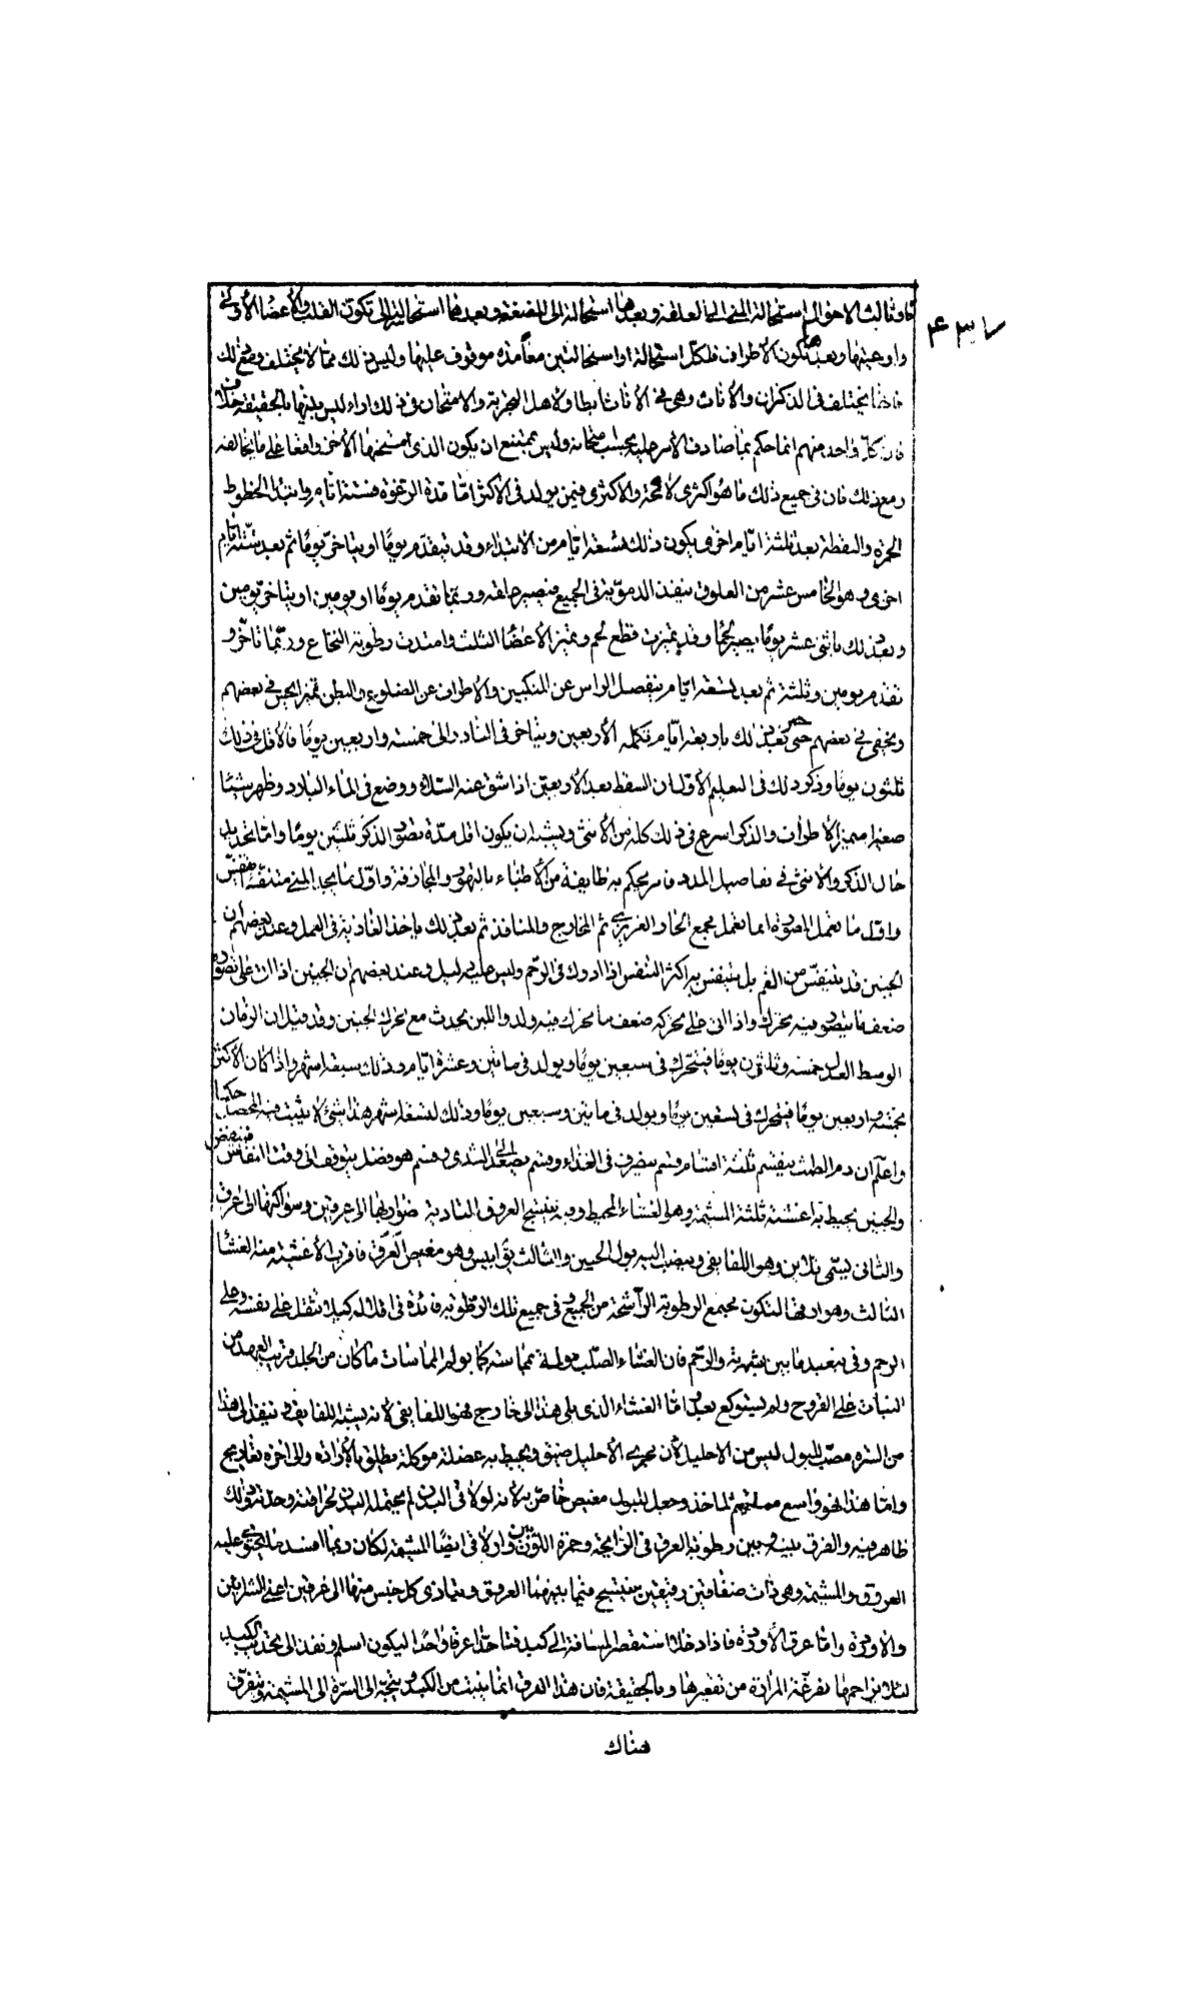 وثالث الاحوال استحالة المنى الى العلقة وبعدها استحالة الى المضغة وبعدها استحالة الى تكون القلب والأعضاء الأولى
واوعيتها وبعدها تكون الأطراف فلكل استحالة او استحالتين معا مدة موقوف عليها وليس ذلك مما لا يختلف ومع ذلك
فانها يختلف فى الذكران والأناث وهى فى الأناث ابطا ولأهل التجربة والامتحان فى ذلك اراء ليس بينها بالحقيقة خلاف
فان كل واحد منهم انما حكم بما صادف الأمر عليه بحسب امتحانه وليس يمتنع ان يكون الذى امتحنها الأخر واقعا على ما يخالفه
ومع ذلك فان فى جميع ذلك ما هو اكثرى لا محة والاكثرى فيمن يولد فى الأكثر امّا مدة الرغوة فستة ايام وابتداء الخطوط
الحمرة والنقطة بعد ثلثة ايام اخرى يكون ذلك تسعة ايام من الابتداء وقد يتقدم يومًا او يتاخر يومًا ثم بعد ستة ايام
اخرى وهو الخامس عشر من العلوق ينفذ الدموية فى الجميع فيصير علقة وربما تقدم يومًا او يومين او يتاخر يومين
وبعد ذلك باثنى عشر يومًا يصير لحمًا وقد تميزت قطع لحم وتميز الأعضا الثلث وامتدت رطوبة النخاع وربّما تاخر و
تقدم يومين وثلثة ثم بعد تسعة ايام ينفصل الراس عن المنكبين والاطراف عن الضلوع والبطن تميز الحس فى بعضهم
ويخفى فى بعضهم حتى بعد ذلك باربعة ايام تكملة الأربعين ويتاخر فى النادر الى خمسة واربعين يومًا فالأقل فى ذلك
ثلثون يوما وذكر ذلك فى التعليم الأول ان السقط بعد الأربعين اذا شق عنه السلا ووضع فى الماء البارد وظهر شيئا
صغيرا مميز الأطراف والذكر اسرع فى ذلك كله من الأنثى ويشبه ان يكون اقل مدة تصور الذكر ثلثين يومًا وامّا تحديد
حال الذكر والأنثى فى تفاصيل المدد فامر يحكم به طايفة من الأطباء بالتهور والمجازفة واول ما يجد المنى متنفسا يتنفس
واول ما تعمل المصورة انما تعمل مجمع الحار الغريزى ثم المخارج والمنافذ ثم بعد ذلك ياخذ الغاذية فى العمل وعند بعضهم ان
الجنين قد يتنفس من الفم بل يتنفس به اكثر التنفس اذا ادرك فى الرحم وليس عليه دليل وعند بعضهم ان الجنين اذا اتى على تصوره
ضعف ما يتصور فيه تحرك واذا اتى على تحركه ضعف ما تحرك فيه ولد واللبن يحدث مع تحرك الجنين وقد قيل ان الزمان
الوسط العدل خمسة وثلثون يومًا فيتحرك فى سبعين يومًا ويولد فى مائتين وعشرة ايام وذلك سبعة اشهر واذا كان الأكثر
بخمسة واربعين يومًا فيتحرك فى تسعين يومًا ويولد فى مائتين وسبعين يومًا وذلك لتسعة اشهر هذا شئ لا يثبت فيه المحصلون حكما
واعلم ان دم الطمث ينقسم ثلثة اقسام قسم ينصرف فى الغذاء وقسم يصعد الى الثدى وقسم هو فضل يتوقف الى وقت النفاس فينتفض
والجنين يحيط به اغشية ثلثة المشيمة وهو الغشاء المحيط وبه ينتسج العروق المتادية ضواربها الى عرقين وسواكنها الى عرقين
والثانى يسمى بلابن وهو اللفايفى وينصب اليه بول الجنين والثالث يق انبس وهو مغيض العرق فاقرب الأغشية منه الغشا
الثالث وهو ارقها لتكون مجمع الرطوبة الراشحة من الجميع وفى جميع تلك الرطوبة فائدة فى اقلاله كيلا تثقل على نفسه وعلى
الرحم وفى تبعيد ما بين بشرته والرحم فان الغشاء الصلب يولمه بمماسته كما يولم المماسات ما كان من الجلد قريب العهد من
النبات على القروح ولم يستوكع بعد وامّا الغشاء الذى يلى هذا الى خارج فهو اللفايفى لانه يشبه اللفايف وينفذ الى هذا
من السرة مصب للبول ليس من الاحليل لأن مجرى الأحليل ضيق ويحيط به عضلة موكلة تطلق بالأرادة والى اخره تعاريج
وامّا هذا فهو واسع مستقيم الماخذ وجعل للبول مغيض خاص لانه لو لاقى البدن لم يحتمله البدن لحرافته وحدته وذلك
ظاهر فيه والفرق بينه وبين رطوبة العرق فى الرائحة وحمرة اللون بين ولو لاقى ايضًا المشيمة لكان ربما افسد ما يحتوى عليه
العروق والمشيمة وهى ذات صفاقين رقيقين ينتسج فيما بينهما العروق ويتادى كل جنس منها الى عرقين اعنى الشرايين
والأوردة وامّا عرقا الأوردة فاذا دخلا استقصر المسافة الى كبد فاتحدا عرقا واحدًا ليكون اسلم ونفذ الى تحديب الكبد
لئلا يزاحمها مفرغة المرارة من تقعيرها وبالحقيقة فان هذا العرق انما ينبت من الكبد وينحدر الى السرة الى المشيمة ويتفرق
هناك